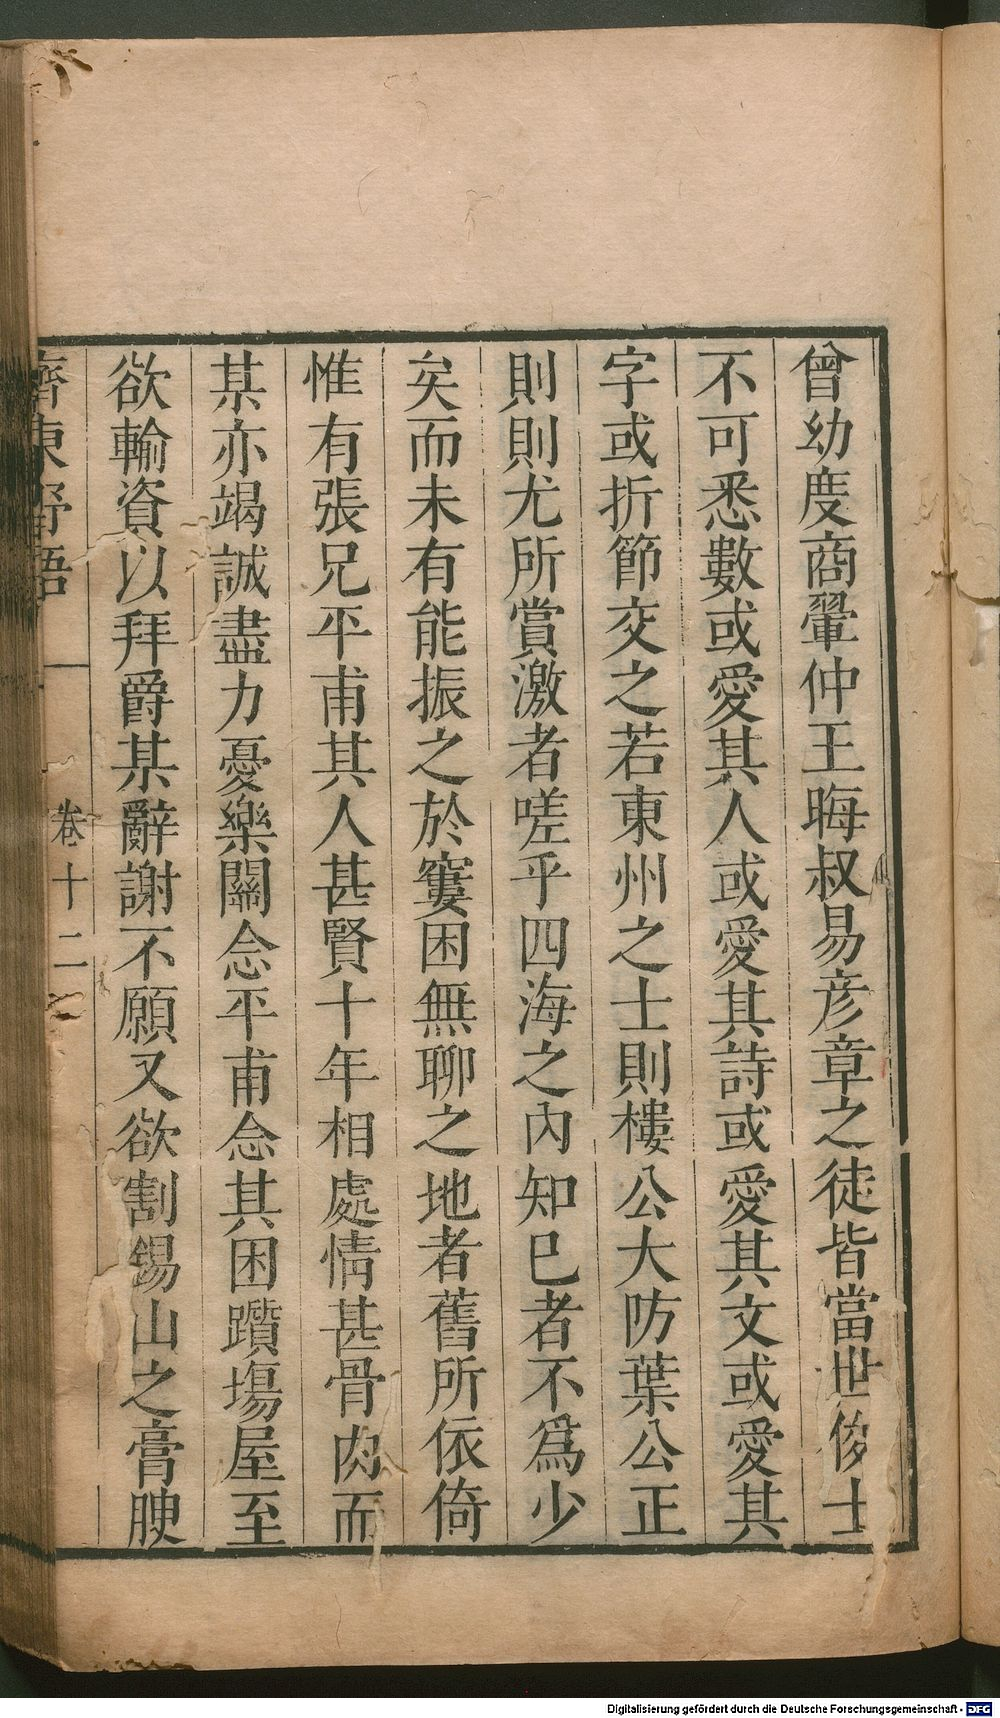 曾幼度商翬仲王晦叔易彦章之徒皆當世俊士
不可悉數或愛其人或愛其詩或愛其文或愛其
字或折節交之若東州之士則樓公大防葉公正
則則尤所賞激者嗟乎四海之內知巳者不爲少
矣而未有能振之於窶困無聊之地者舊所依倚
惟有張兄平甫其人甚賢十年相處情甚骨肉而
某亦竭誠盡力憂樂關念平甫念其困躓塲屋至
欲輸資以拜爵某辭謝不願又欲割錫山之膏腴
齊東野語 卷十二
Digitalisierung gefördert durch die Deutsche Forschungsgemeinschaft - DFG